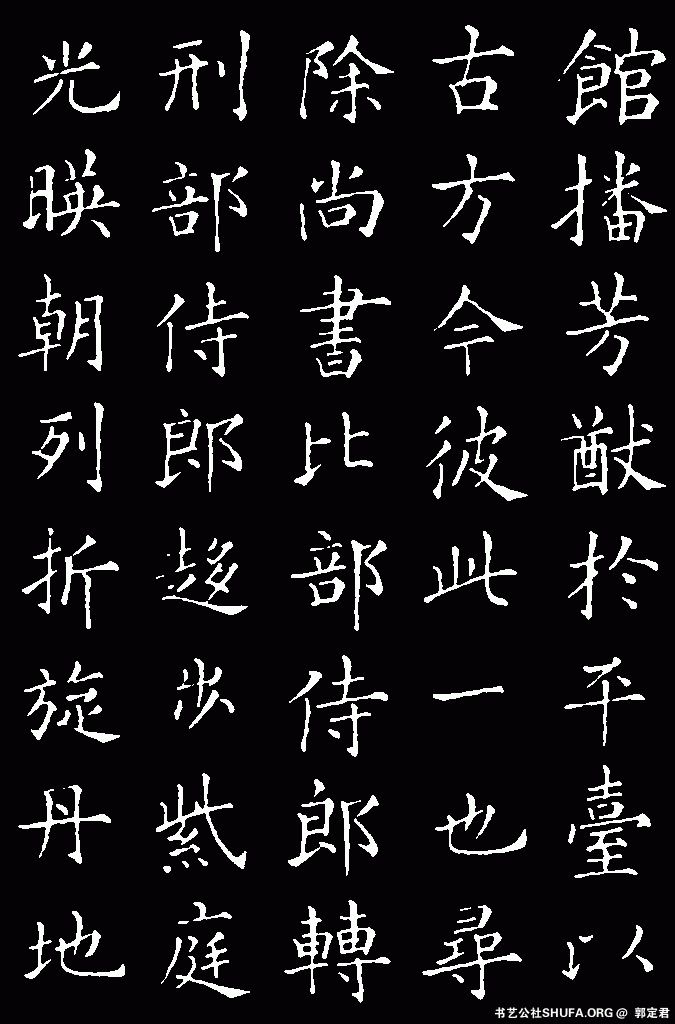 館播芳猷於平臺以
古方今彼此一也尋
除尚書比部侍郎轉
刑部侍郎趍步紫庭
光暎朝列折旋丹地
书艺公社SHUFA.ORG @ 郭定君